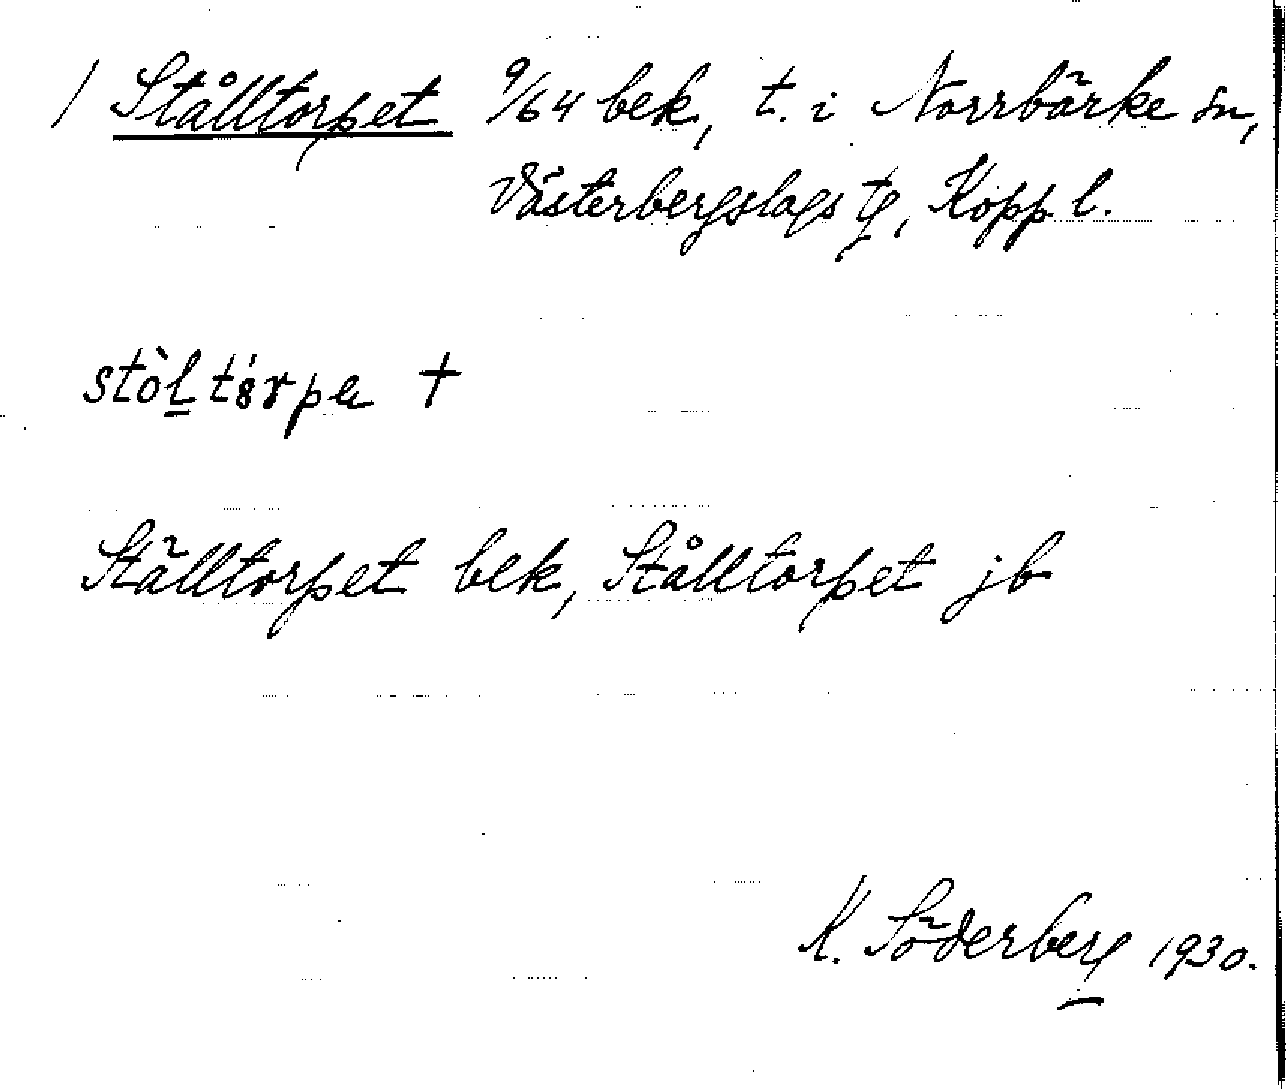 / Stålltorpet 9/64 bek, t. i Norrbärke sn,
Västerbergslags tg, Kopp l.
Ställtorpet bek, Stålltorpet jb
K. Söderberg 1930.